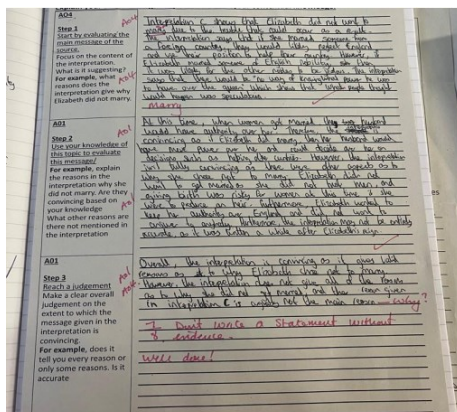 AO4
Step 1
Start by evaluating the
main message of the
source.
Focus on the content of
the interpretation.
What is it suggesting?
For example, what
reasons does the
interpretation give why
Elizabeth did not marry.
Interpretation C shows that Elizabeth did not want to
marry due to the trouble that could occur as a result.
The interpretation says that if she married someone from
a foreign country, they would likely neglect England
and use their position to help their country. However, if
Elizabeth married someone of English
it was likely for the other nobles to be jealous. The interpretation
says that there would be 'no way of knowing what power he was
to have over the queen' which shows that what people thought
would happen was speculation.
Marry
AO1
Step 2
Use your knowledge of
this topic to evaluate
this message/
For example, explain
the reasons in the
interpretation why she
did not marry. Are they
convincing based on
your knowledge
What other reasons are
there not mentioned in
the interpretation
At this time, when women got married they husband
would have authority over her. Therefore, the
convincing as if Elizabeth did marry, then her husband would
have more power over her and could decide on her on
decisions, such as making
isn't fully convincing as there were other aspects as to
why she chose not to marry. Elizabeth did not
want to get married as she did not men and
giving birth was risky for women at the time if she
were to produce an heir. Furthermore, Elizabeth wanted to
keep her authority over England and did not want to
to anybody. Furthermore, the interpretation may not be entirely
accurate as it was written a while after Elizabeth's reign.
AO1
Step 3
Reach a judgement
Make a clear overall
judgement on the
extent to which the
message given in the
interpretation is
convincing.
For example, does it
tell you every reason or
only some reasons. Is it
accurate
Overall, the interpretation is convincing as it gives
reasons as to why Elizabeth chose not to marry.
However, the interpretation does not give all of the reasons
as to why she did not get married and the reason given
in interpretation C is not the main reason. why?
7
8
Dont write a statement without
evidence.
Well done!